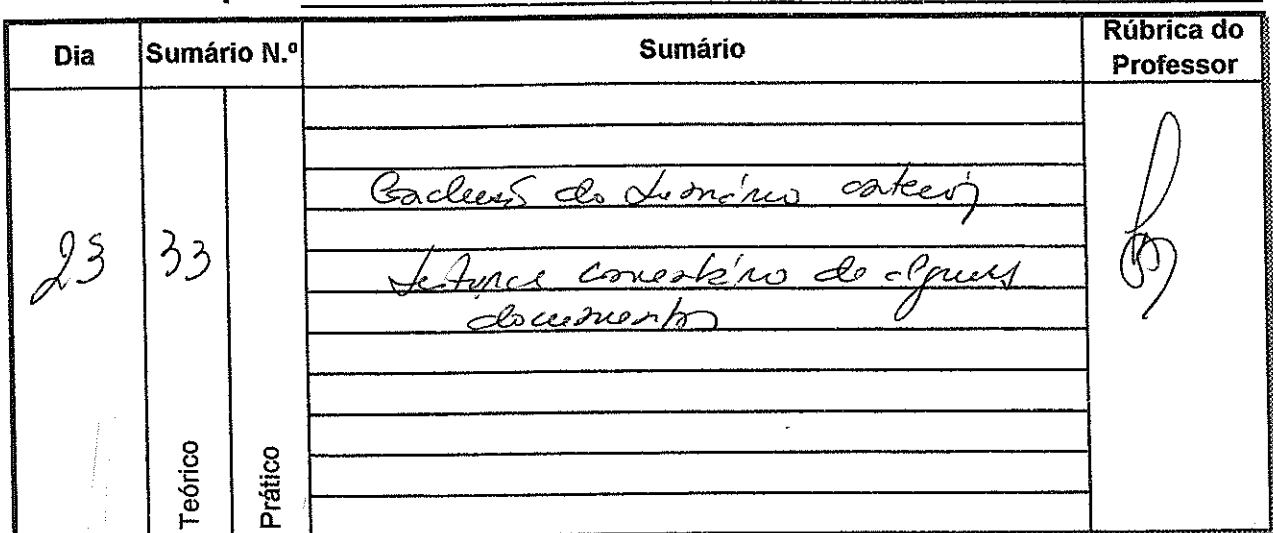 Dia Sumário N.º Sumário Rúbrica do Professor
Conclusão do Sumário anterior
23 33 Leitura e comentário de alguns
documentos
Teórico Prático